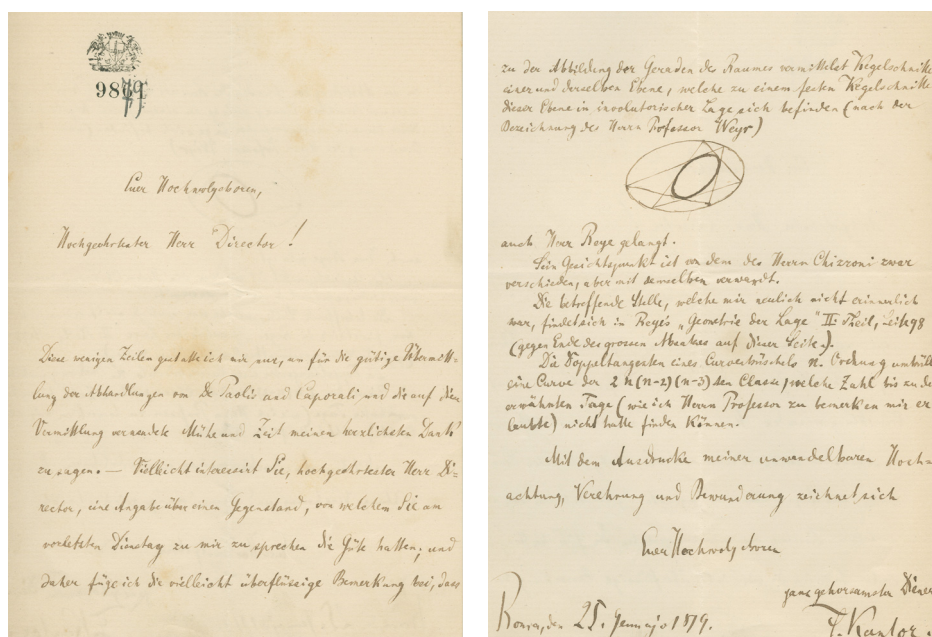 9879
Euer Hochwolgeboren,
Hochgeehrtester Herr Director!
Diese wenigen Zeilen gestatte ich mir nur, um für die gütige Übermitt=
lung der Abhandlungen von De Paolis und Caporali und die auf diese
Vermittlung verwendete Mühe und Zeit meinen herzlichsten Dank
zu sagen. — Vielleicht interessirt Sie, hochgeehrtester Herr Di=
rector, eine Angabe über einen Gegenstand, von welchem Sie am
vorletzten Dienstag zu mir zu sprechen die Güte hatten, und
daher füge ich die vielleicht überflüssige Bemerkung bei, dass
zu der Abbildung der Geraden des Raumes vermittelst Kegelschnitte
einer und derselben Ebene, welche zu einem festen Kegelschnitte
dieser Ebene in involutorischer Lage sich befinden (nach der
Bezeichnung des Herrn Professor Weyr)
auch Herr Reye gelangt.
Sein Gesichtspunkt ist von dem des Herrn Chizzoni zwar
verschieden, aber mit demselben verwandt.
Die betreffende Stelle, welche mir neulich nicht erinnerlich
war, findet sich in Reye's „Geometrie der Lage" II. Theil, Seite 98
(gegen Ende des grossen Absatzes auf dieser Seite).
Die Doppeltangenten eines Curvenbüschels n. Ordnung umhüll
eine Curve der 2n(n-2)(n-3)ten Classe, welche Zahl bis zu de
erwähnten Tage (wie ich Herrn Professor zu bemerken mir er
laubte) nicht hatte finden können.
Mit dem Ausdrucke meiner unwandelbaren Hoch
achtung, Verehrung und Bewunderung zeichnet sich
Euer Hochwolgeboren
ganz gehorsamster Diener
Roma, den 25. Gennajo 1879.
S. Kantor.